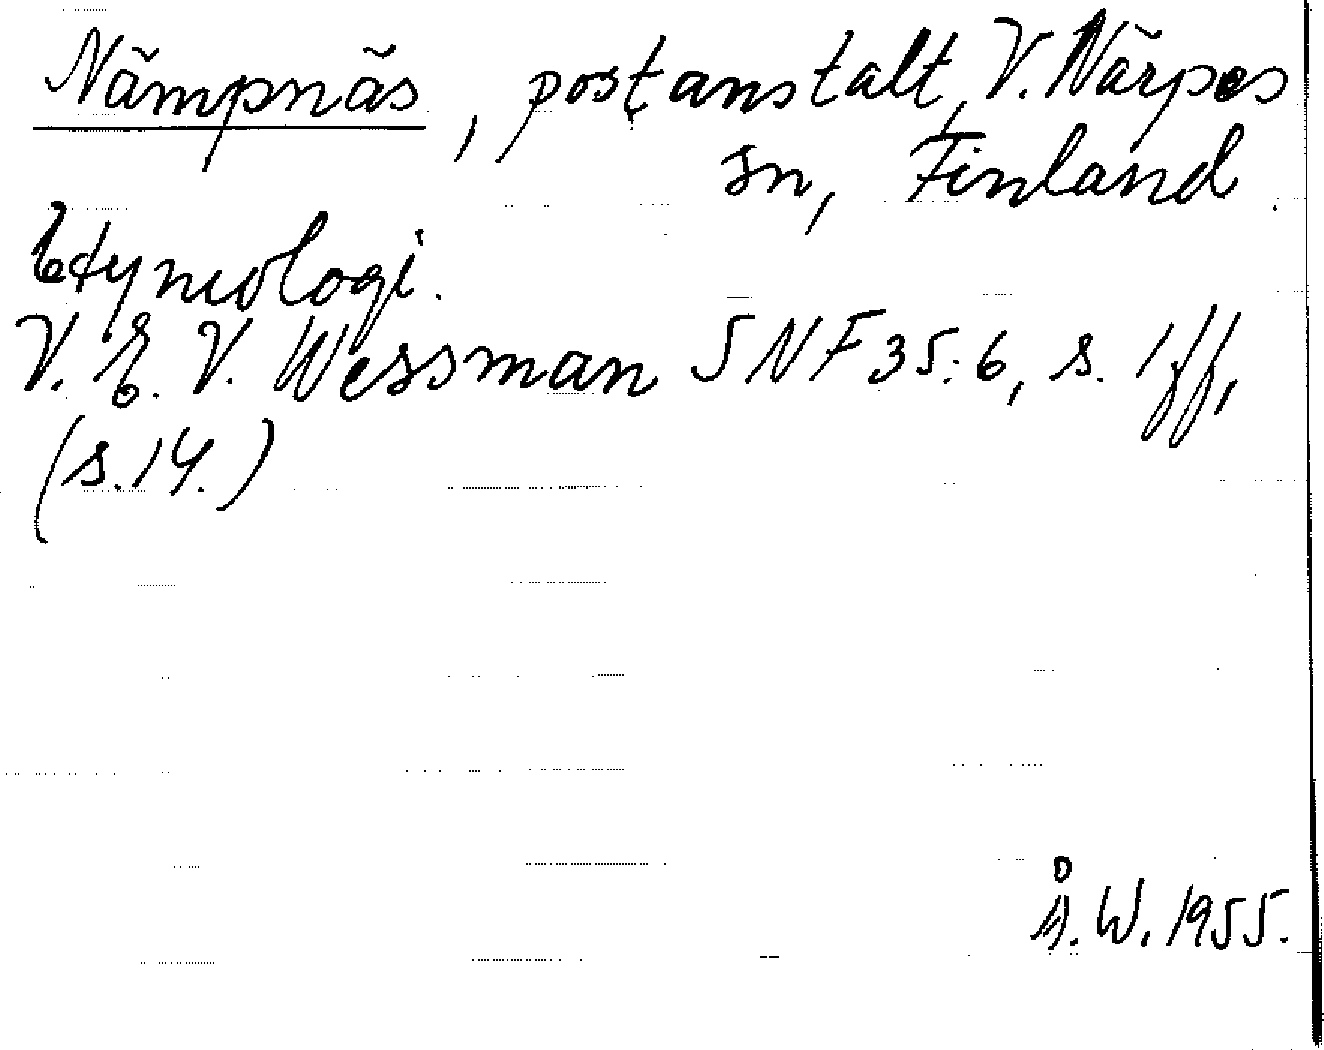 Nämpnäs, postanstalt, V. Närpes
sn, Finland.
Etymologi.
V. E. V. Wessman SNF 35:6, s. 1ff,
(s. 14.)
Å. W. 1955.